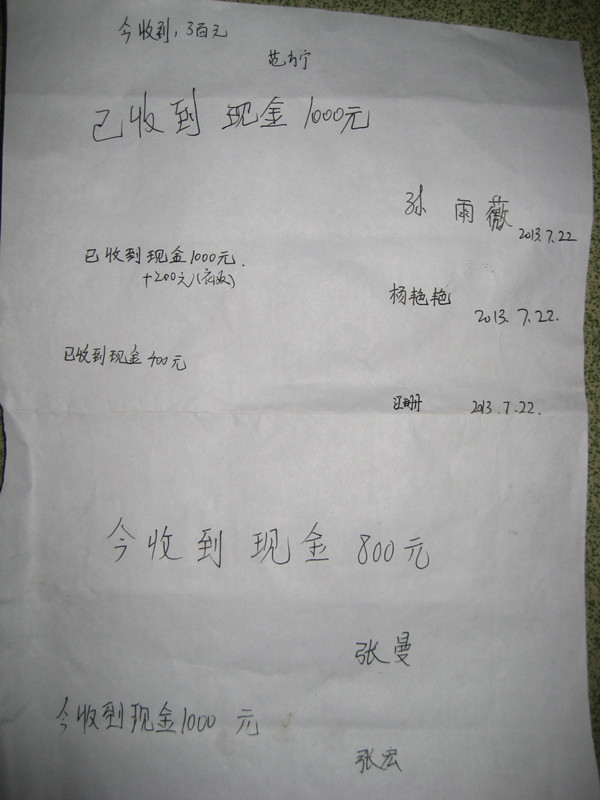 今收到，3百元
已收到现金1000元
孙雨薇
2013.7.22
已收到现金1000元.
+200元(衣服)
杨艳艳
2013.7.22.
已收到现金400元
汪珊
2013.7.22.
今收到现金800元
张曼
今收到现金1000元
张宏